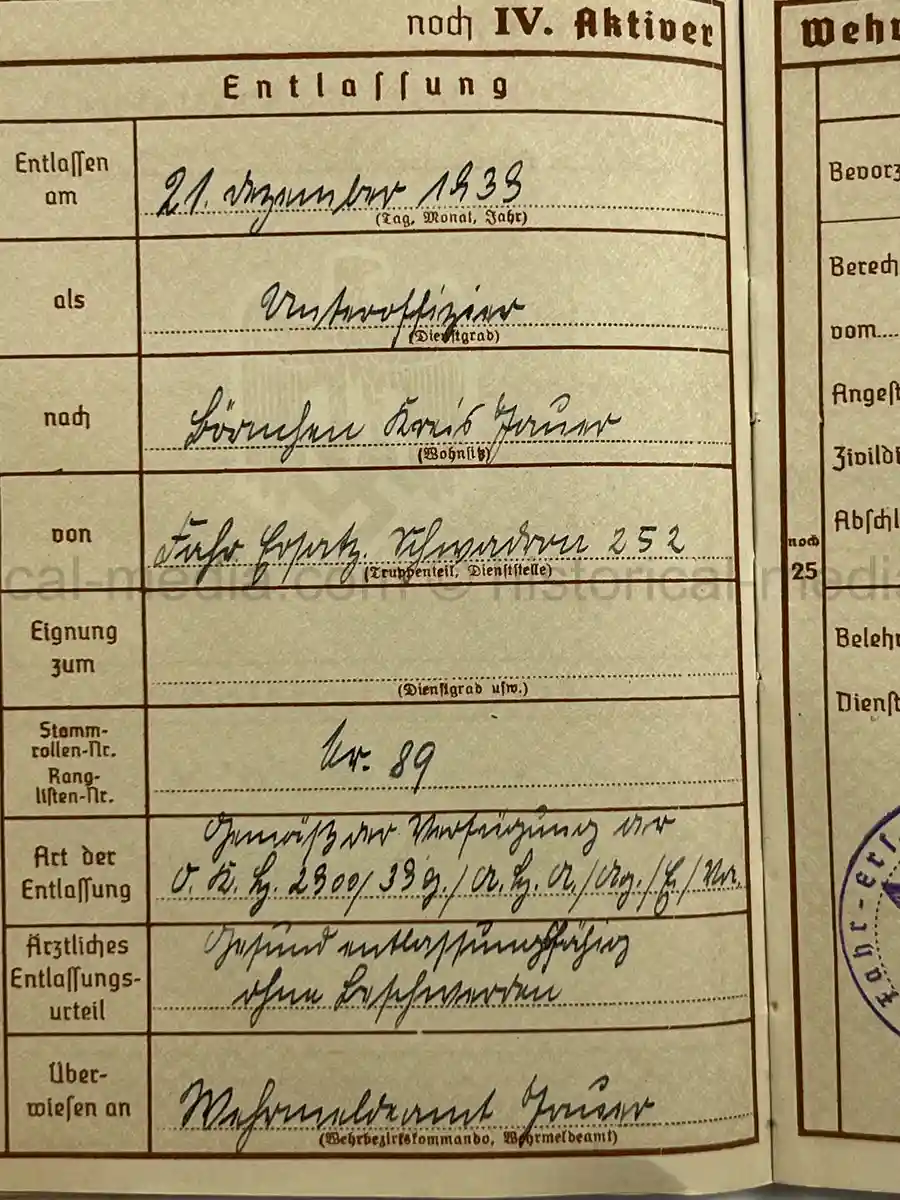 noch IV. Aktiver
Entlassung
Entlassen am
21. Dezember 1939
(Tag, Monat, Jahr)
als
Unteroffizier
(Dienstgrad)
nach
Börnchen Kreis Jauer
(Wohnsitz)
von
Fahr Ersatz. Schwadron 252
(Truppenteil, Dienststelle)
Eignung
zum
(Dienstgrad usw.)
Stamm-
rollen-Nr.
Rang-
listen-Nr.
Nr. 89
Art der
Entlassung
Gemäß der Verfügung der
O. K. H. 2900/39 g./A. H. A./Ag./E/
Ärztliches
Entlassungs-
urteil
Gesund entlassungsfähig
ohne Beschwerden
Über-
wiesen an
Wehrmeldeamt Jauer
(Wehrbezirkskommando, Wehrmeldeamt)
Wehr
Bevorz
Berech
vom....
Angest
Zivildi
Abschl
noch
25
Beleh
Dienst
Fahr-Ers
cal-media.com © historical-media